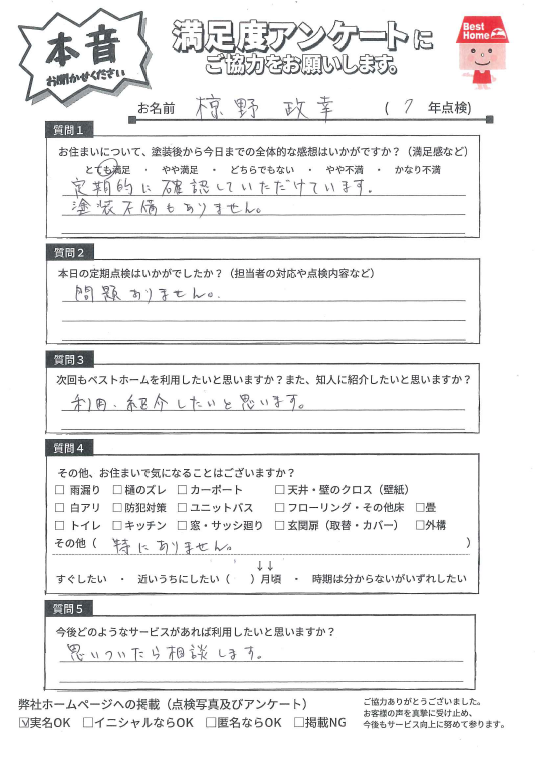 本音
お聞かせください
満足度アンケートに
ご協力をお願いします。
Best Home
お名前 椋野 政幸 ( 7 年点検)
質問1
お住まいについて、塗装後から今日までの全体的な感想はいかがですか?(満足感など)
とても満足 ・ やや満足 ・ どちらでもない ・ やや不満 ・ かなり不満
定期的に確認していただけています。
塗装不備もありません。
質問2
本日の定期点検はいかがでしたか?(担当者の対応や点検内容など)
問題ありません。
質問3
次回もベストホームを利用したいと思いますか?また、知人に紹介したいと思いますか?
利用、紹介したいと思います。
質問4
その他、お住まいで気になることはございますか?
□ 雨漏り □ 樋のズレ □ カーポート □ 天井・壁のクロス(壁紙)
□ 白アリ □ 防犯対策 □ ユニットバス □ フローリング・その他床 □畳
□ トイレ □ キッチン □ 窓・サッシ廻り □ 玄関扉(取替・カバー) □外構
その他( 特にありません。 )
↓↓
すぐしたい ・ 近いうちにしたい( )月頃 ・ 時期は分からないがいずれしたい
質問5
今後どのようなサービスがあれば利用したいと思いますか?
思いついたら相談します。
弊社ホームページへの掲載(点検写真及びアンケート)
☑実名OK □イニシャルならOK □匿名ならOK □掲載NG
ご協力ありがとうございました。
お客様の声を真摯に受け止め、
今後もサービス向上に努めて参ります。